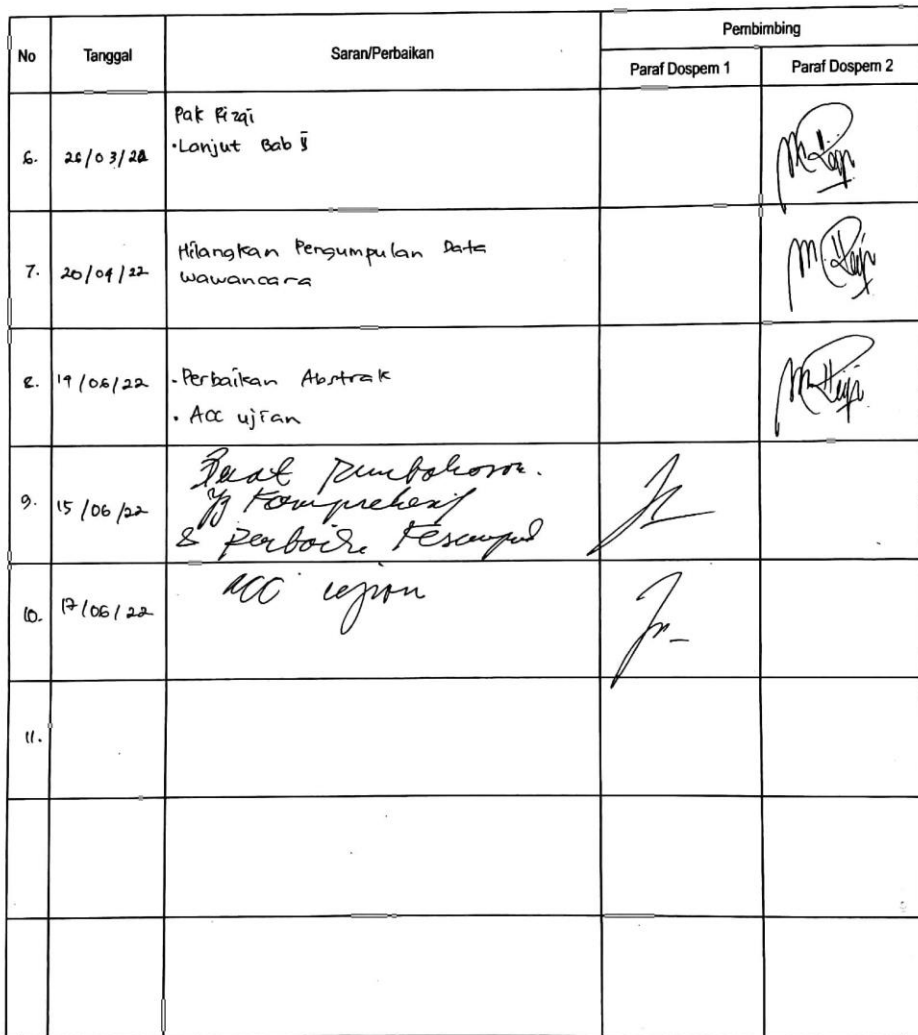 No
Tanggal
Saran/Perbaikan
Pembimbing
Paraf Dospem 1
Paraf Dospem 2
6.
Pak Rizqi
•Lanjut Bab
7.
20/04/22
Hilangkan Pengumpulan Data
wawancara
8.
19/05/22
•Perbaikan Abstrak
• ACC ujian
9.
15/06/22
Buat Pembahasan
yg Komprehensif
& perbaiki Kesimpul
10.
17/06/22
ACC ujian
11.